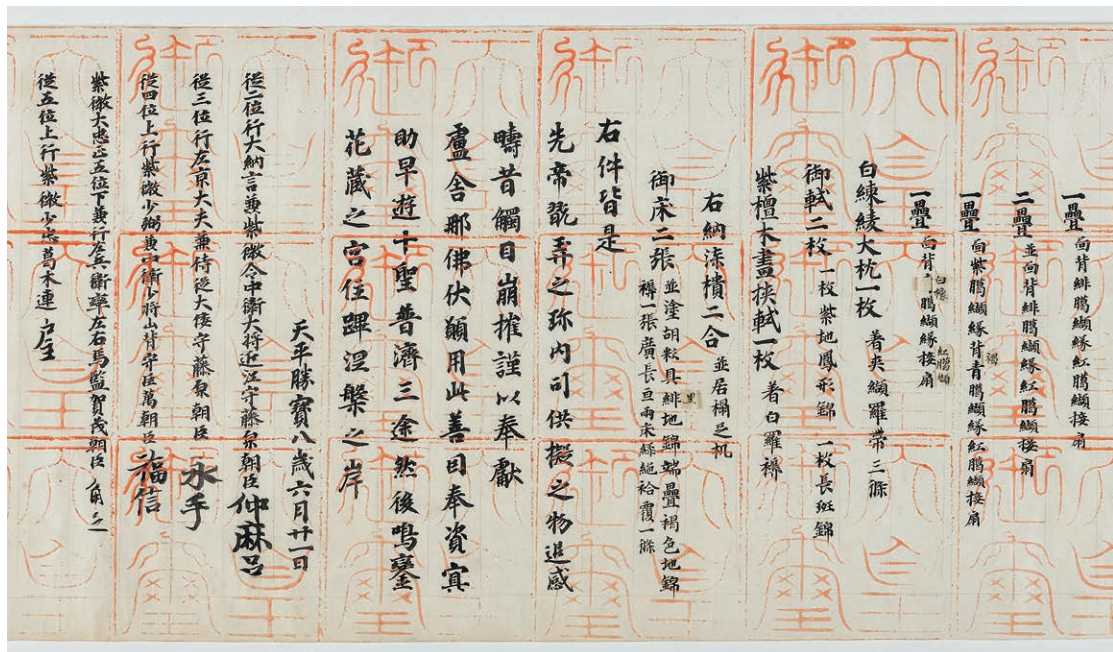 一疊 向背緋臈纈緣紅臈纈接扇
二疊 並向背緋臈纈緣紅臈纈接扇
一疊 向紫臈纈緣背青臈纈緣紅臈纈接扇
一疊 向背臈纈緣接扇
白練綾大枕一枚 著夾纈羅帶三條
御軾二枚 一枚紫地鳳形錦 一枚長斑錦
紫檀木畫挾軾一枚 著白羅褥
右納漆樻二合 並居榻足机
御床二張 並塗胡粉具緋地錦端疊褐色地錦
褥一張廣長亘兩床綠絁袷覆一條
黑
右件皆是
先帝翫弄之珍內司供擬之物追感
疇昔觸目崩摧謹以奉獻
盧舍那佛伏願用此善因奉資冥
助早遊十聖普濟三途然後鳴鑾
花藏之宮住蹕涅槃之岸
天平勝寶八歲六月廿一日
從二位行大納言兼紫微令中衛大將近江守藤原朝臣 仲麻呂
從三位行左京大夫兼侍從大倭守藤原朝臣 永手
從四位上行紫微少弼兼中衛少將山背守巨萬朝臣 福信
紫微大忠正五位下兼行左兵衛率左右馬監賀茂朝臣 角足
從五位上行紫微少忠葛木連 戶主
天皇御璽